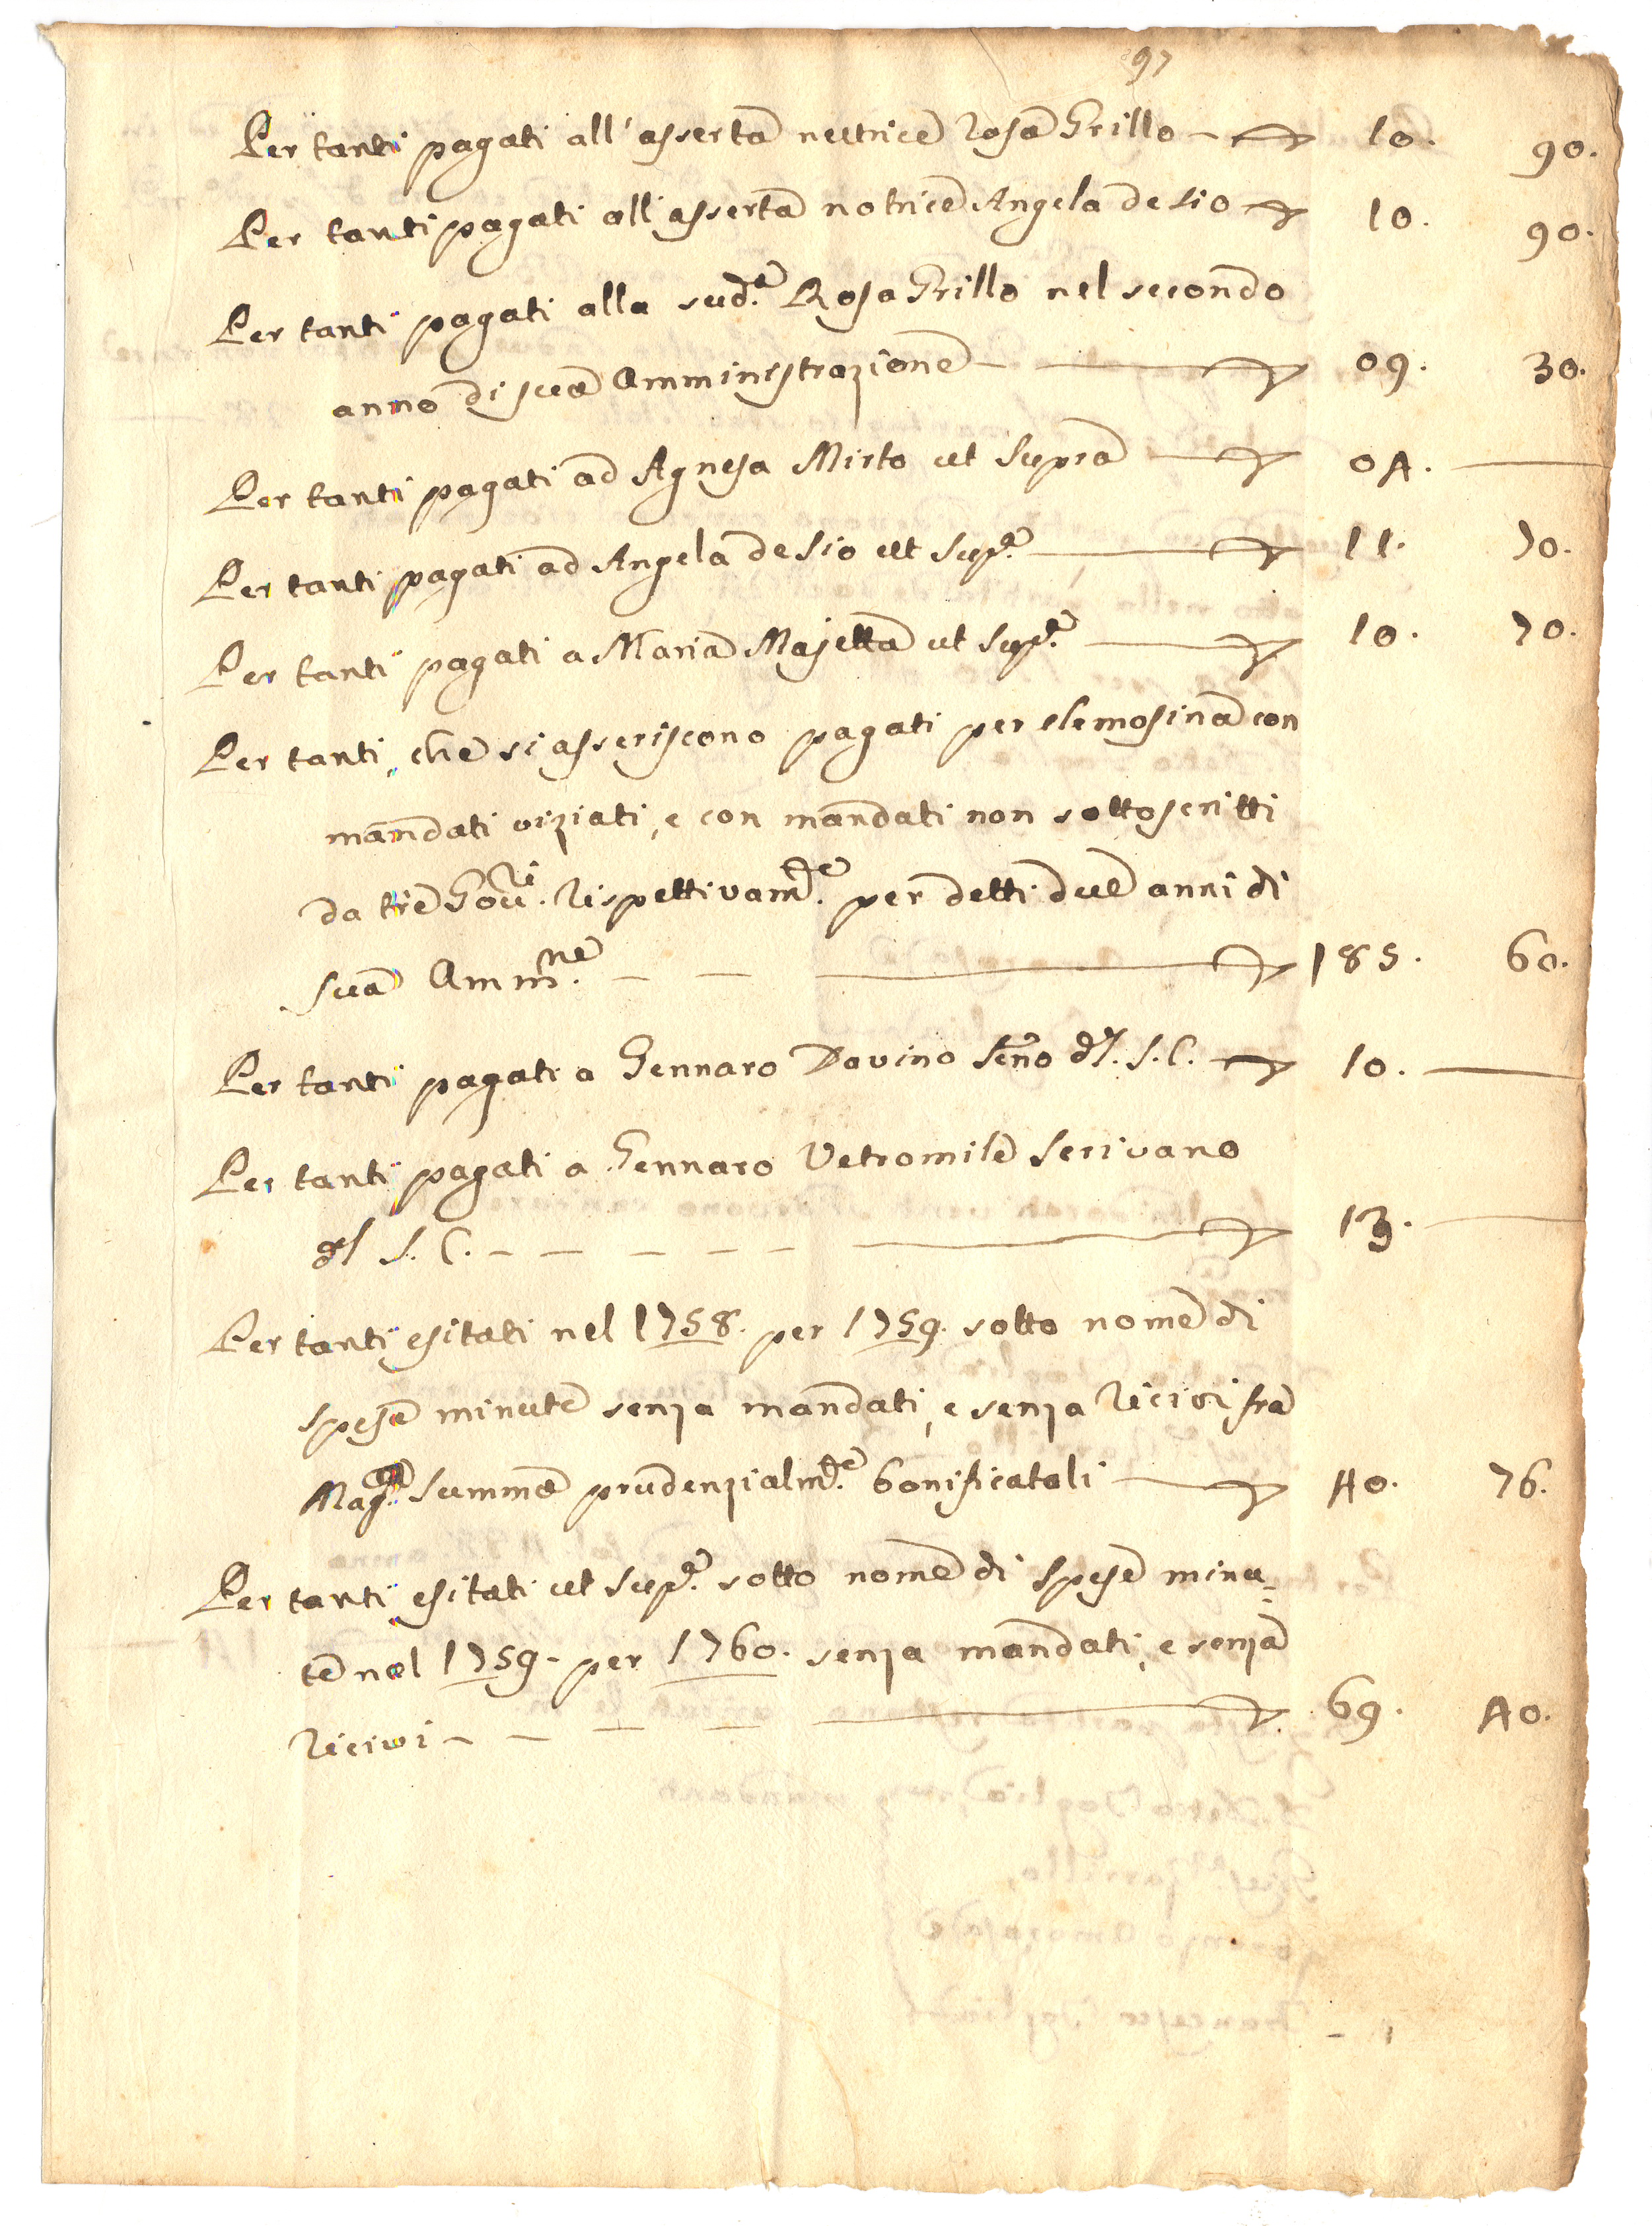 97
Per tanti pagati all'asserta nutrice Rosa Grillo 10. 90.
Per tanti pagati all'asserta notrice Angela de Sio 10. 90.
Per tanti pagati alla sud.ª Rosa Grillo nel secondo
anno di sua Amministrazione 09. 30.
Per tanti pagati ad Agnesa Mirto ut supra 04. —
Per tanti pagati ad Angela de Sio ut sup.ª 11. 70.
Per tanti pagati a Maria Majetta ut sup.ª 10. 70.
Per tanti, che si asseriscono pagati per elemosina con
mandati viziati, e con mandati non sottoscritti
da tre Gov.ri rispettivam.te per detti due anni di
sua Amm.ne 185. 60.
Per tanti pagati a Gennaro Davino S.no d'l. S. C. 10. —
Per tanti pagati a Gennaro Vetromile Scrivano
d'l S. C. 13. —
Per tanti esitati nel 1758. per 1759. sotto nome di
spese minute senza mandati, e senza ricivi fra
Mag.r summa prudenzialm.te bonificatali 40. 76.
Per tanti esitati ut sup.ª sotto nome di spese minu=
te nel 1759. per 1760. senza mandati, e senza
ricivi 69. 40.